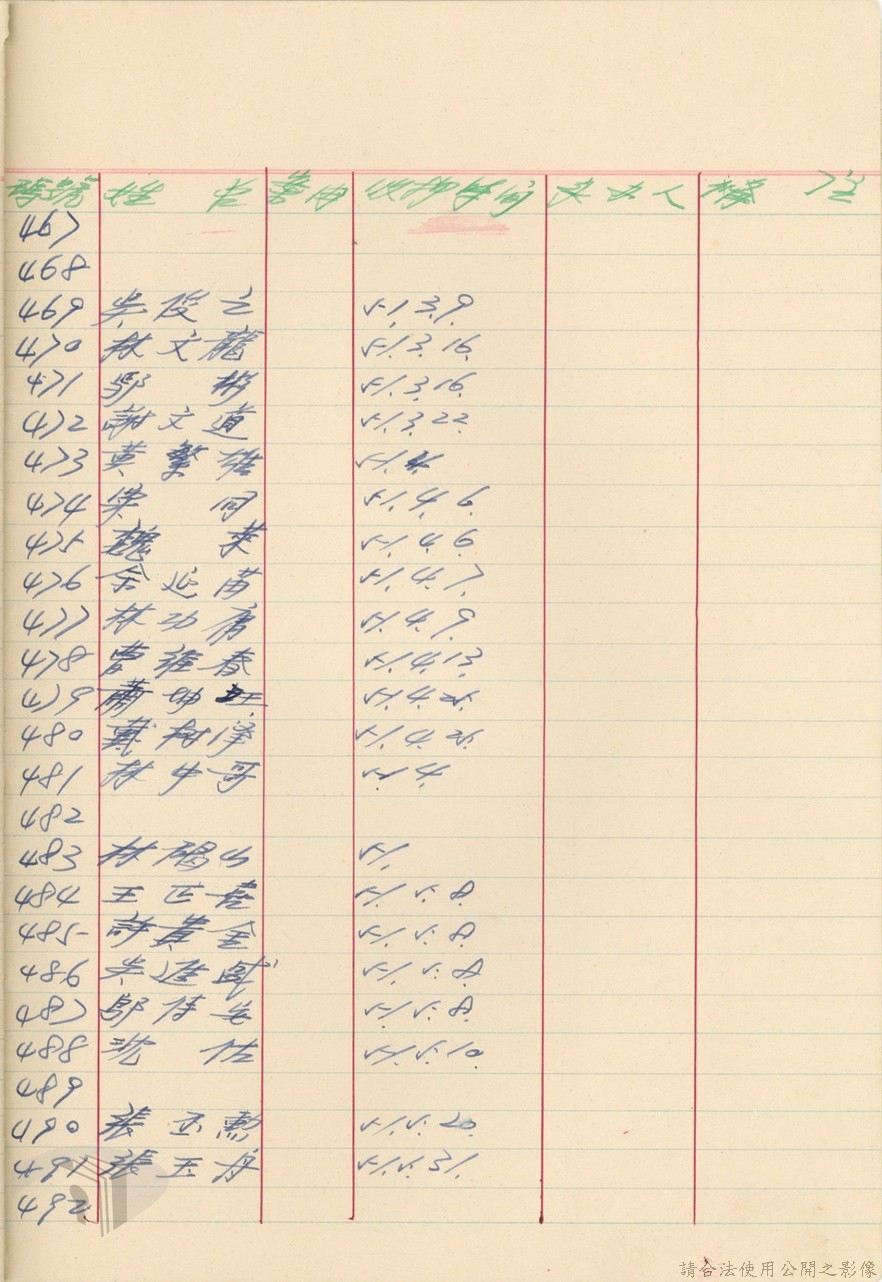 號 姓 名 案由 收押時間 承办人 備 註
467
468
469 吳俊立 51.3.9.
470 林文龍 51.3.16.
471 鄔 彬 51.3.16.
472 謝文道 51.3.22.
473 黃繁雄 51.4.
474 梁 同 51.4.6.
475 魏 萊 51.4.6.
476 余延苗 51.4.7.
477 林功庸 51.4.9.
478 曹維春 51.4.13.
479 蕭坤旺 51.4.25.
480 戴樹澤 51.4.25.
481 林中哥 51.4.
482
483 林碣山 51.
484 王正喜 51.5.8.
485 許黃金 51.5.8.
486 吳進盛 51.5.8.
487 鄔侍宏 51.5.8.
488 沈 佑 51.5.10.
489
490 張丕勳 51.5.20.
491 張玉舟 51.5.31.
492
請合法使用公開之影像